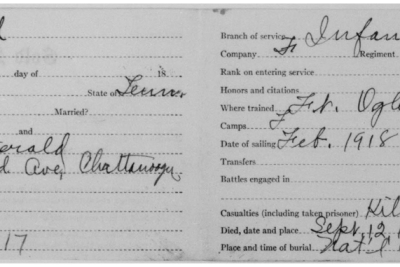 day of 18
State of Tenn
Married?
and
erald
d Ave, Chattanooga
17
Branch of service Infan
Company F Regiment
Rank on entering service
Honors and citations
Where trained Ft. Ogle
Camps
Date of sailing Feb. 1918
Transfers
Battles engaged in
Casualties (including taken prisoner) Kil
Died, date and place Sept. 12,
Place and time of burial Nat'l